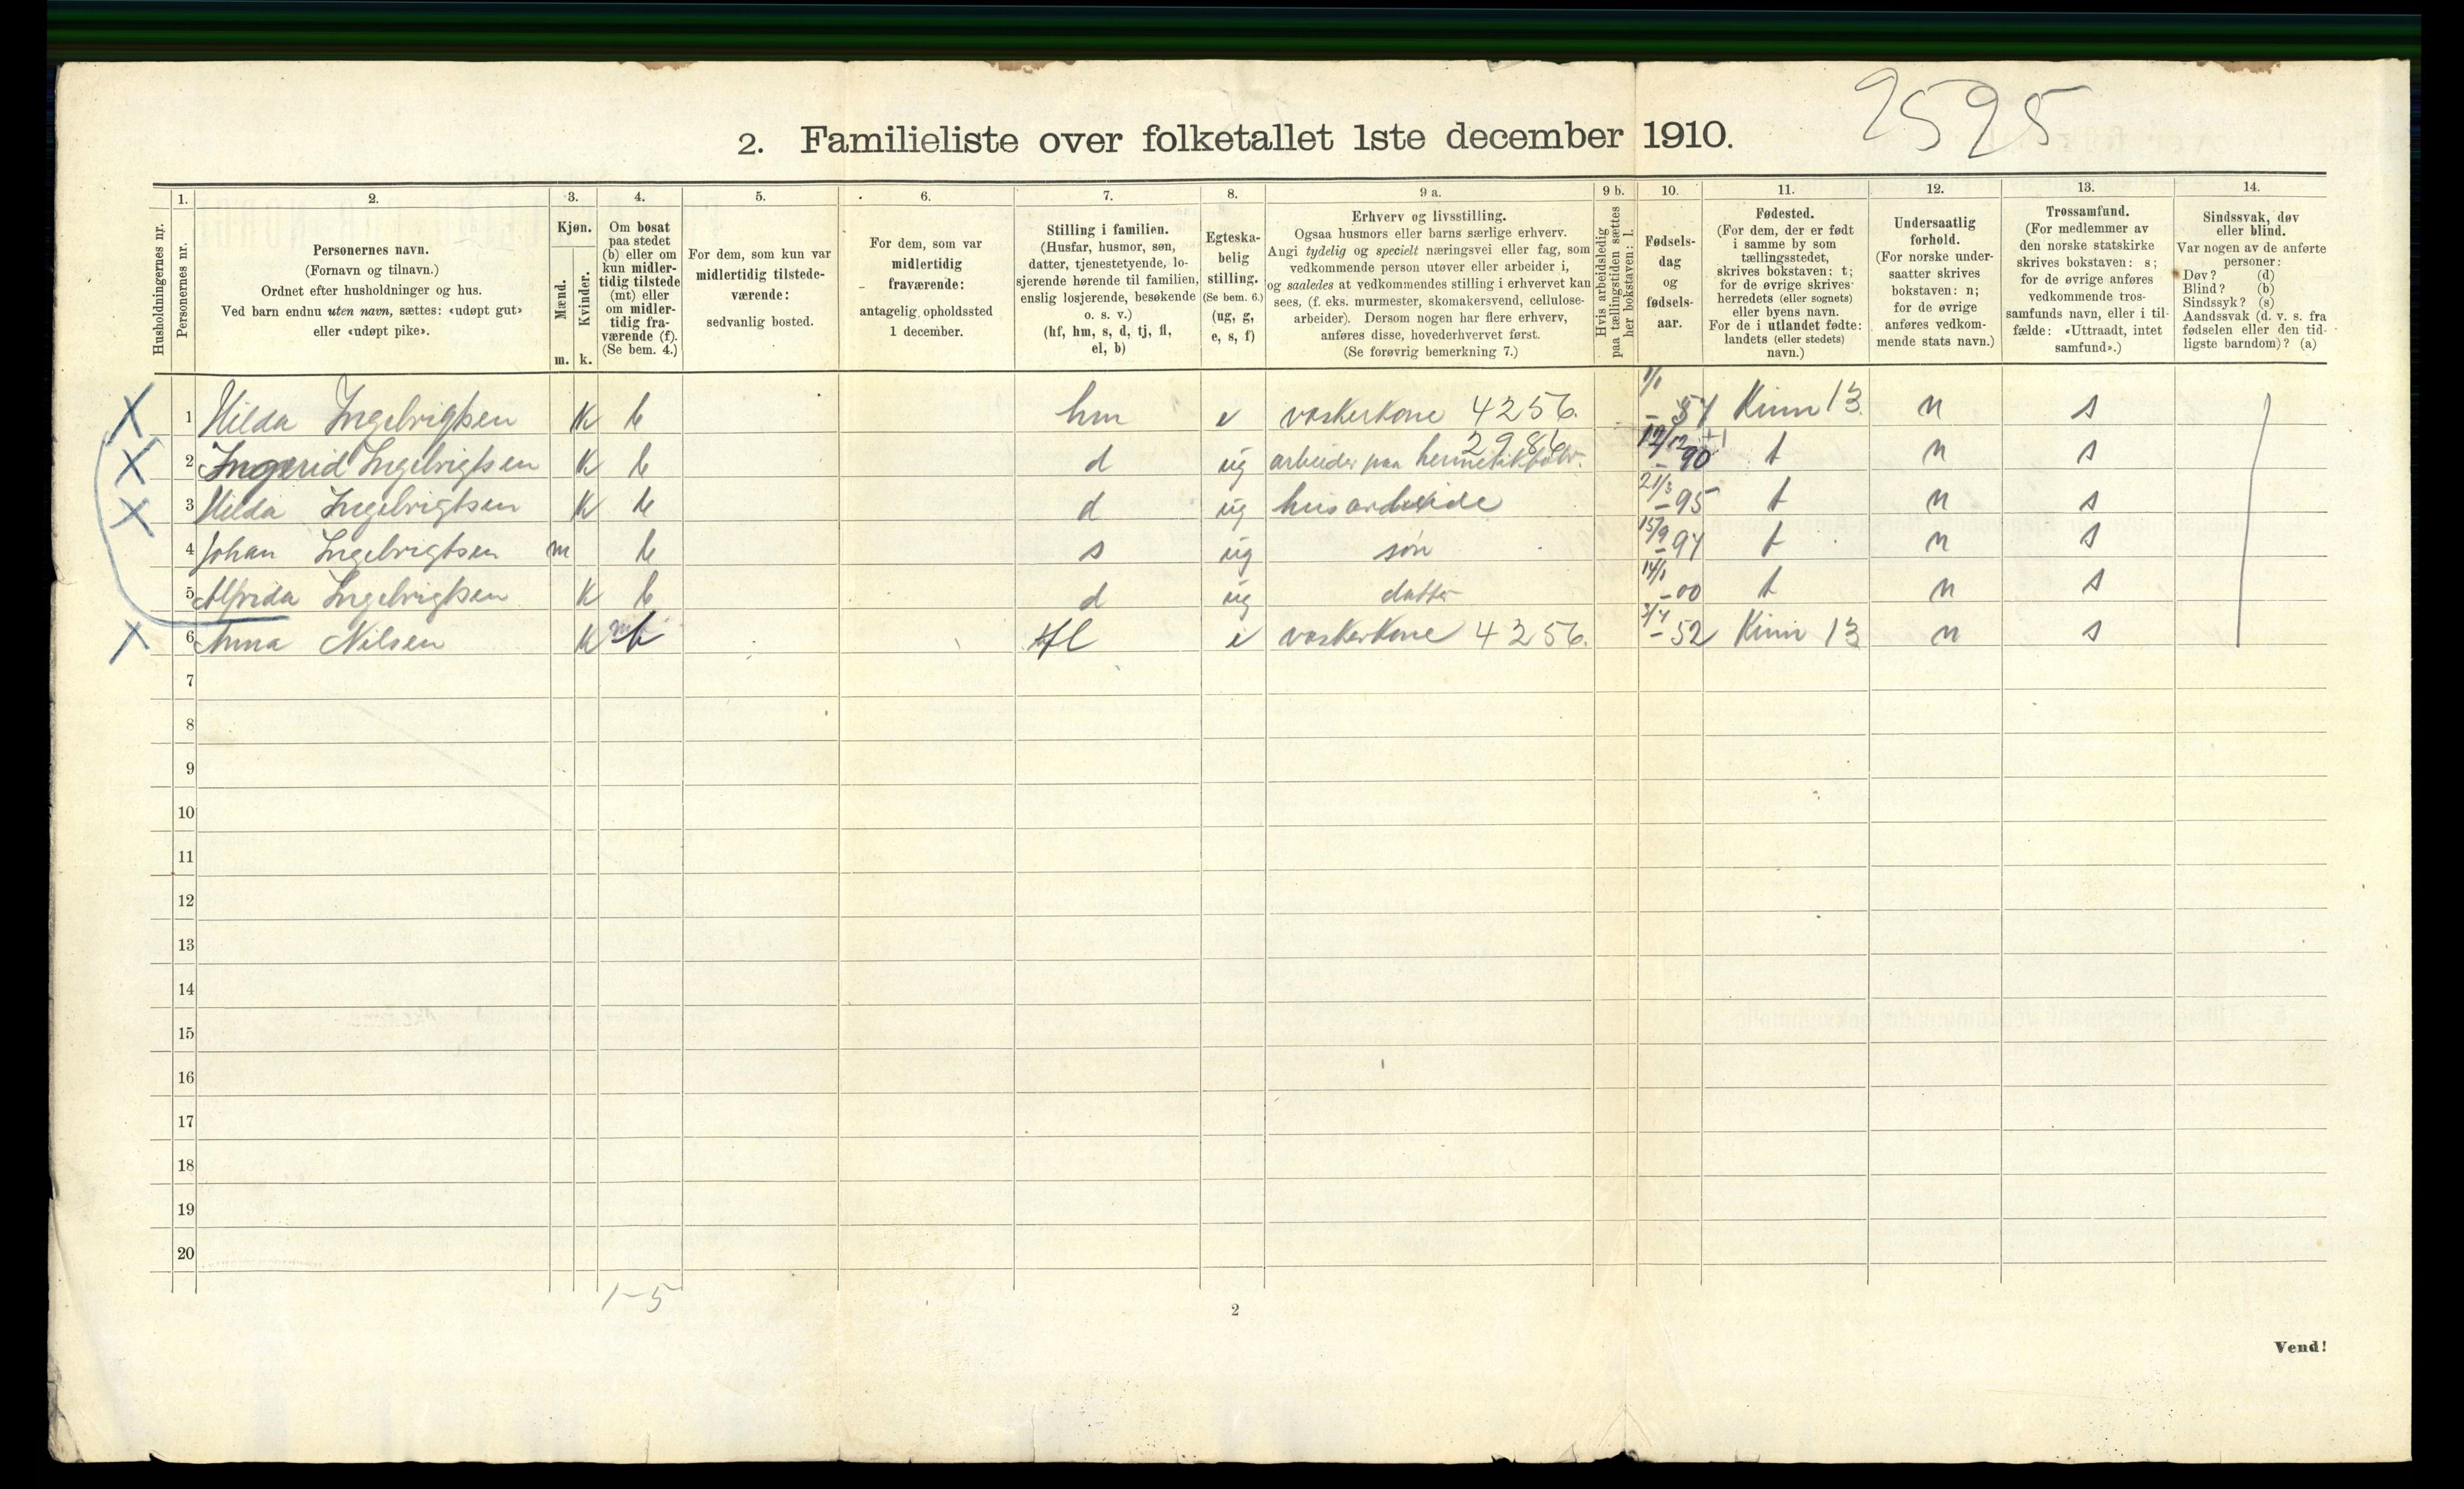 2525
2. Familieliste over folketallet 1ste december 1910.
Husholdningernes nr.
1.
Personernes nr.
2.
Personernes navn.
(Fornavn og tilnavn.)
Ordnet efter husholdninger og hus.
Ved barn endnu uten navn, sættes: «udøpt gut»
eller «udøpt pike».
3.
Kjøn.
Mænd.
Kvinder.
m. k.
4.
Om bosat
paa stedet
(b) eller om
kun midler-
tidig tilstede
(mt) eller
om midler-
tidig fra-
værende (f).
(Se bem. 4.)
5.
For dem, som kun var
midlertidig tilstede-
værende:
sedvanlig bosted.
6.
For dem, som var
midlertidig
fraværende:
antagelig opholdssted
1 december.
7.
Stilling i familien.
(Husfar, husmor, søn,
datter, tjenestetyende, lo-
sjerende hørende til familien,
enslig losjerende, besøkende
o. s. v.)
(hf, hm, s, d, tj, fl,
el, b)
8.
Egteska-
belig
stilling.
(Se bem. 6.)
(ug, g,
e, s, f)
9 a.
Erhverv og livsstilling.
Ogsaa husmors eller barns særlige erhverv.
Angi tydelig og specielt næringsvei eller fag, som
vedkommende person utøver eller arbeider i,
og saaledes at vedkommendes stilling i erhvervet kan
sees, (f. eks. murmester, skomakersvend, cellulose-
arbeider). Dersom nogen har flere erhverv,
anføres disse, hovederhvervet først.
(Se forøvrig bemerkning 7.)
9 b.
Hvis arbeidsledig
paa tællingstiden sættes
her bokstaven: l.
10.
Fødsels-
dag
og
fødsels-
aar.
11.
Fødested.
(For dem, der er født
i samme by som
tællingsstedet,
skrives bokstaven: t;
for de øvrige skrives
herredets (eller sognets)
eller byens navn.
For de i utlandet fødte:
landets (eller stedets)
navn.)
12.
Undersaatlig
forhold.
(For norske under-
saatter skrives
bokstaven: n;
for de øvrige
anføres vedkom-
mende stats navn.)
13.
Trossamfund.
(For medlemmer av
den norske statskirke
skrives bokstaven: s;
for de øvrige anføres
vedkommende tros-
samfunds navn, eller i til-
fælde: «Uttraadt, intet
samfund».)
14.
Sindssvak, døv
eller blind.
Var nogen av de anførte
personer:
Døv? (d)
Blind? (b)
Sindssyk? (s)
Aandssvak (d. v. s. fra
fødselen eller den tid-
ligste barndom)? (a)
X 1 Hilda Ingebrigtsen K b hm e vaskerkone 4256. 1/1 - 57 Kinn 13 n s
X 2 Ingerid Ingebrigtsen K b d ug arbeider paa hermetikfabr. 2986 12/12 - 90 t n s
X 3 Hilda Ingebrigtsen K b d ug husarbeide 21/3 - 95 t n s
4 Johan Ingebrigtsen m b s ug søn 15/9 - 97 t n s
5 Alfrida Ingebrigtsen K b d ug datter 14/1 - 00 t n s
X 6 Anna Nilsen K b fl e vaskerkone 4256. 3/4 - 52 Kinn 13 n s
7
8
9
10
11
12
13
14
15
16
17
18
19
20
1-5
2
Vend!